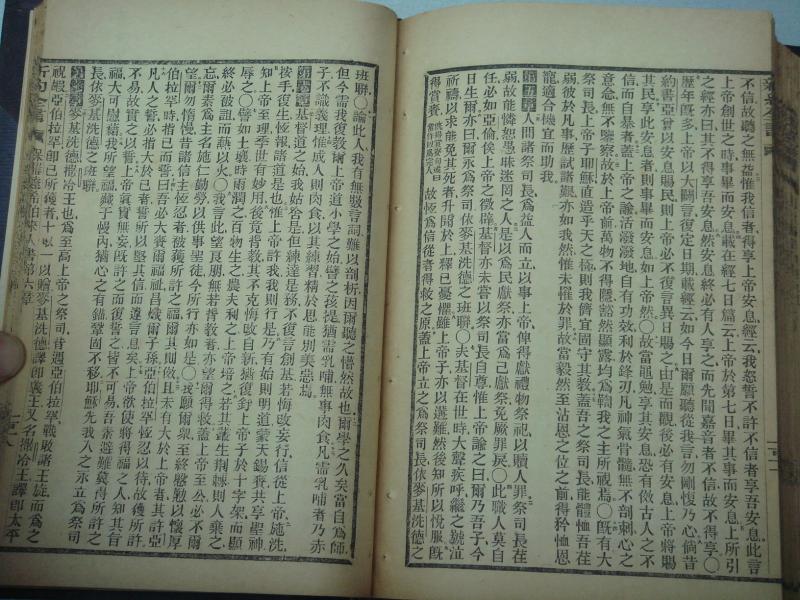 不信故聽之無益惟我信者得享上帝安息經云我怒誓不許不信者享吾安息此言
上帝創世之時事畢而安息載在經七日篇云上帝於第七日畢其事而安息上所引
之經亦曰其不得享吾安息然安息終必有人享之而先聞嘉音者不信故不得享〇
歷年旣多上帝以大闢言復定日期載經云如今日爾願聽從我言勿剛愎乃心倘昔
約書亞曾以安息賜民則上帝必不復言異日賜之由是而觀後必有安息上帝將賜
其民享此安息者則事畢而安息如上帝然〇故當黽勉享其安息恐有傚古人之不
信而自暴者蓋上帝之諭活潑潑地自有功效利於鋒刃凡神氣骨髓無不剖刺心之
意念無不鑒察故於上帝前萬物不得隱豁然顯露均爲鞫我之主所視焉〇旣有大
祭司長上帝子耶穌直造乎天之極則我儕宜固守其敎蓋吾之祭司長能體恤吾荏
弱彼於凡事歷試諸艱亦如我然惟未罹於罪故當毅然至沾恩之位之前得矜恤恩
寵適合機宜而助我
第五章 人間諸祭司長爲益人而立以事上帝俾得獻禮物祭祀以贖人罪祭司長荏
弱故能憐恕愚昧迷罔之人是以爲民獻祭亦當爲己獻祭免厥罪戾〇此職人莫自
任必如亞倫俟上帝之徵辟基督亦未嘗以祭司長自尊惟上帝諭之曰爾乃吾子今
日生爾亦曰爾永爲祭司依麥基洗德之班聯〇夫基督在世時大聲疾呼繼之號泣
祈禱以求能免其死者升聞於上釋已憂懼雖上帝子亦以遘難然後知所以悅服旣
得賞賚故恆爲信從者得救之原蓋上帝立之爲祭司長依麥基洗德之
班聯〇論此人我有無數言詞難以剖析因爾聽之懵然故也爾學之久矣當自爲師
但今需我復敎爾上帝道小學之始譬之孩提猶需乳哺無事肉食凡需乳哺者乃赤
子不識義理惟成人則肉食以其練習精於思能別美惡焉
第六章 基督道之始我姑舍是但練達是務不復言創基若悔改妄行信從上帝施洗
按手復生恆報諸道是也惟上帝許我我則行是乃有始則明道蒙天錫賚共享聖神
知上帝至理季世有妙用後竟背敎其不克悔改自新猶復釘上帝子於十字架而顯
辱之〇譬如土壤時雨潤之百物生之農夫利之上帝培之若其叢生荊棘則人棄之
終必被詛而爇以火〇我言此望良朋無若背敎者亦望爾得救蓋上帝至公必不爾
忘爾素爲主名施仁勸勞以供事聖徒今所行亦如是〇我願爾衆至終慇懃以懷厚
望爾勿惰慢昔諸信主恆忍者被獲所許之福爾其則傚且未有大於上帝者其許亞
伯拉罕時指己而誓曰吾必大賚爾福祉昌熾爾子孫亞伯拉罕恆忍以待故獲所許
凡人之誓必指大於己者誓所以堅其信而違言息矣上帝欲使將得福之人知其旨
不易故實之以誓上帝眞實無妄旣許之而復誓之皆不可易吾輩避難莫得所許之
福大可慰藉我所望福藏于幔內猶心之有錨鞏固不移耶穌先我入之永立爲祭司
長依麥基洗德之班聯
第七章 麥基洗德撒冷王也爲至高上帝之祭司昔遇亞伯拉罕戰敗諸王旋而爲之
祝嘏亞伯拉罕卽已所獲者十取一以贈麥基洗德譯卽義王又名撒冷王譯卽太平